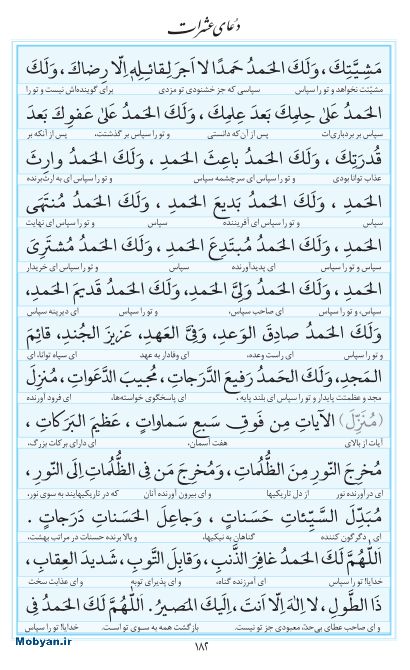 دعای عشرات
مَشِيَّتِكَ، وَلَكَ الحَمدُ حَمدًا لا اَجرَ لِقائِلِهِ اِلّا رِضاكَ، وَلَكَ
مشیّتت نخواهد و تو را سپاس سپاسی که جز خشنودی تو مزدی برای گوینده‌اش نیست و تو را
الحَمدُ عَلىٰ حِلمِكَ بَعدَ عِلمِكَ، وَلَكَ الحَمدُ عَلىٰ عَفوِكَ بَعدَ
سپاس بر بردباری‌ات پس از آن‌که دانستی و تو را سپاس بر گذشتت، پس از آنکه بر
قُدرَتِكَ، وَلَكَ الحَمدُ باعِثَ الحَمدِ، وَلَكَ الحَمدُ وارِثَ
عذاب توانا بودی و تو را سپاس ای سرچشمه سپاس و تو را سپاس ای به ارث‌برنده
الحَمدِ، وَلَكَ الحَمدُ بَديعَ الحَمدِ، وَلَكَ الحَمدُ مُنتَهَى
سپاس و تو را سپاس ای آفریننده سپاس و تو را سپاس ای نهایت
الحَمدِ، وَلَكَ الحَمدُ مُبتَدِعَ الحَمدِ، وَلَكَ الحَمدُ مُشتَرِىَ
سپاس و تو را سپاس ای پدیدآورنده سپاس و تو را سپاس ای خریدار
الحَمدِ، وَلَكَ الحَمدُ وَلِىَّ الحَمدِ، وَلَكَ الحَمدُ قَديمَ الحَمدِ،
سپاس، و تو را سپاس ای صاحب سپاس، و تو را سپاس ای دیرینه سپاس
وَلَكَ الحَمدُ صادِقَ الوَعدِ، وَفِىَّ العَهدِ، عَزيزَ الجُندِ، قائِمَ
و تو را سپاس ای راست وعده، ای وفادار به عهد ای سپاه توانا، ای
المَجدِ، وَلَكَ الحَمدُ رَفيعَ الدَّرَجاتِ، مُجيبَ الدَّعَواتِ، مُنزِلَ
مجد و عظمتت پایدار و تو را سپاس ای بلند پایه، ای پاسخگوی خواسته‌ها، ای فرود آورنده
(مُنَزِّلَ) الآياتِ مِن فَوقِ سَبعِ سَماواتٍ، عَظيمَ البَرَكاتِ،
آیات از بالای هفت آسمان، ای دارای برکات بزرگ،
مُخرِجَ النّورِ مِنَ الظُّلُماتِ، وَمُخرِجَ مَن فِى الظُّلُماتِ اِلَى النّورِ،
ای درآورنده نور از دل تاریکیها و ای بیرون آورنده آنان که در تاریکیهایند به سوی نور،
مُبَدِّلَ السَّيِّئاتِ حَسَناتٍ، وَجاعِلَ الحَسَناتِ دَرَجاتٍ.
ای دگرگون کننده گناهان به نیکیها، و بالا برنده حسنات در مراتب بهشت،
اَللّٰهُمَّ لَكَ الحَمدُ غافِرَ الذَّنبِ، وَقابِلَ التَّوبِ، شَديدَ العِقابِ،
خدایا! تو را سپاس ای آمرزنده گناه، و ای پذیرای توبه و ای عذابت سخت
ذَا الطَّولِ، لا اِلٰهَ اِلّا اَنتَ، اِلَيكَ المَصيرُ. اَللّٰهُمَّ لَكَ الحَمدُ فِى
و ای صاحب عطای بی‌حدّ، معبودی جز تو نیست. بازگشت همه به سوی تو است. خدایا! تو را سپاس
۱۸۲
Mobyan.ir